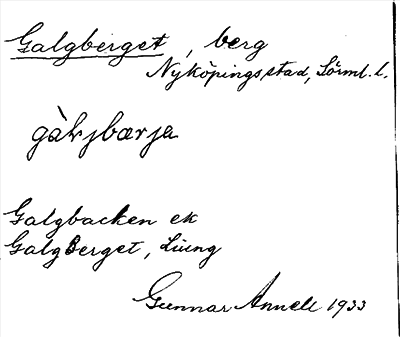 Galgberget, berg
Nyköpings stad, Sörml. l.
gàljbærja
Galgbacken ek
Galgberget, Ljung
Gunnar Annell 1933